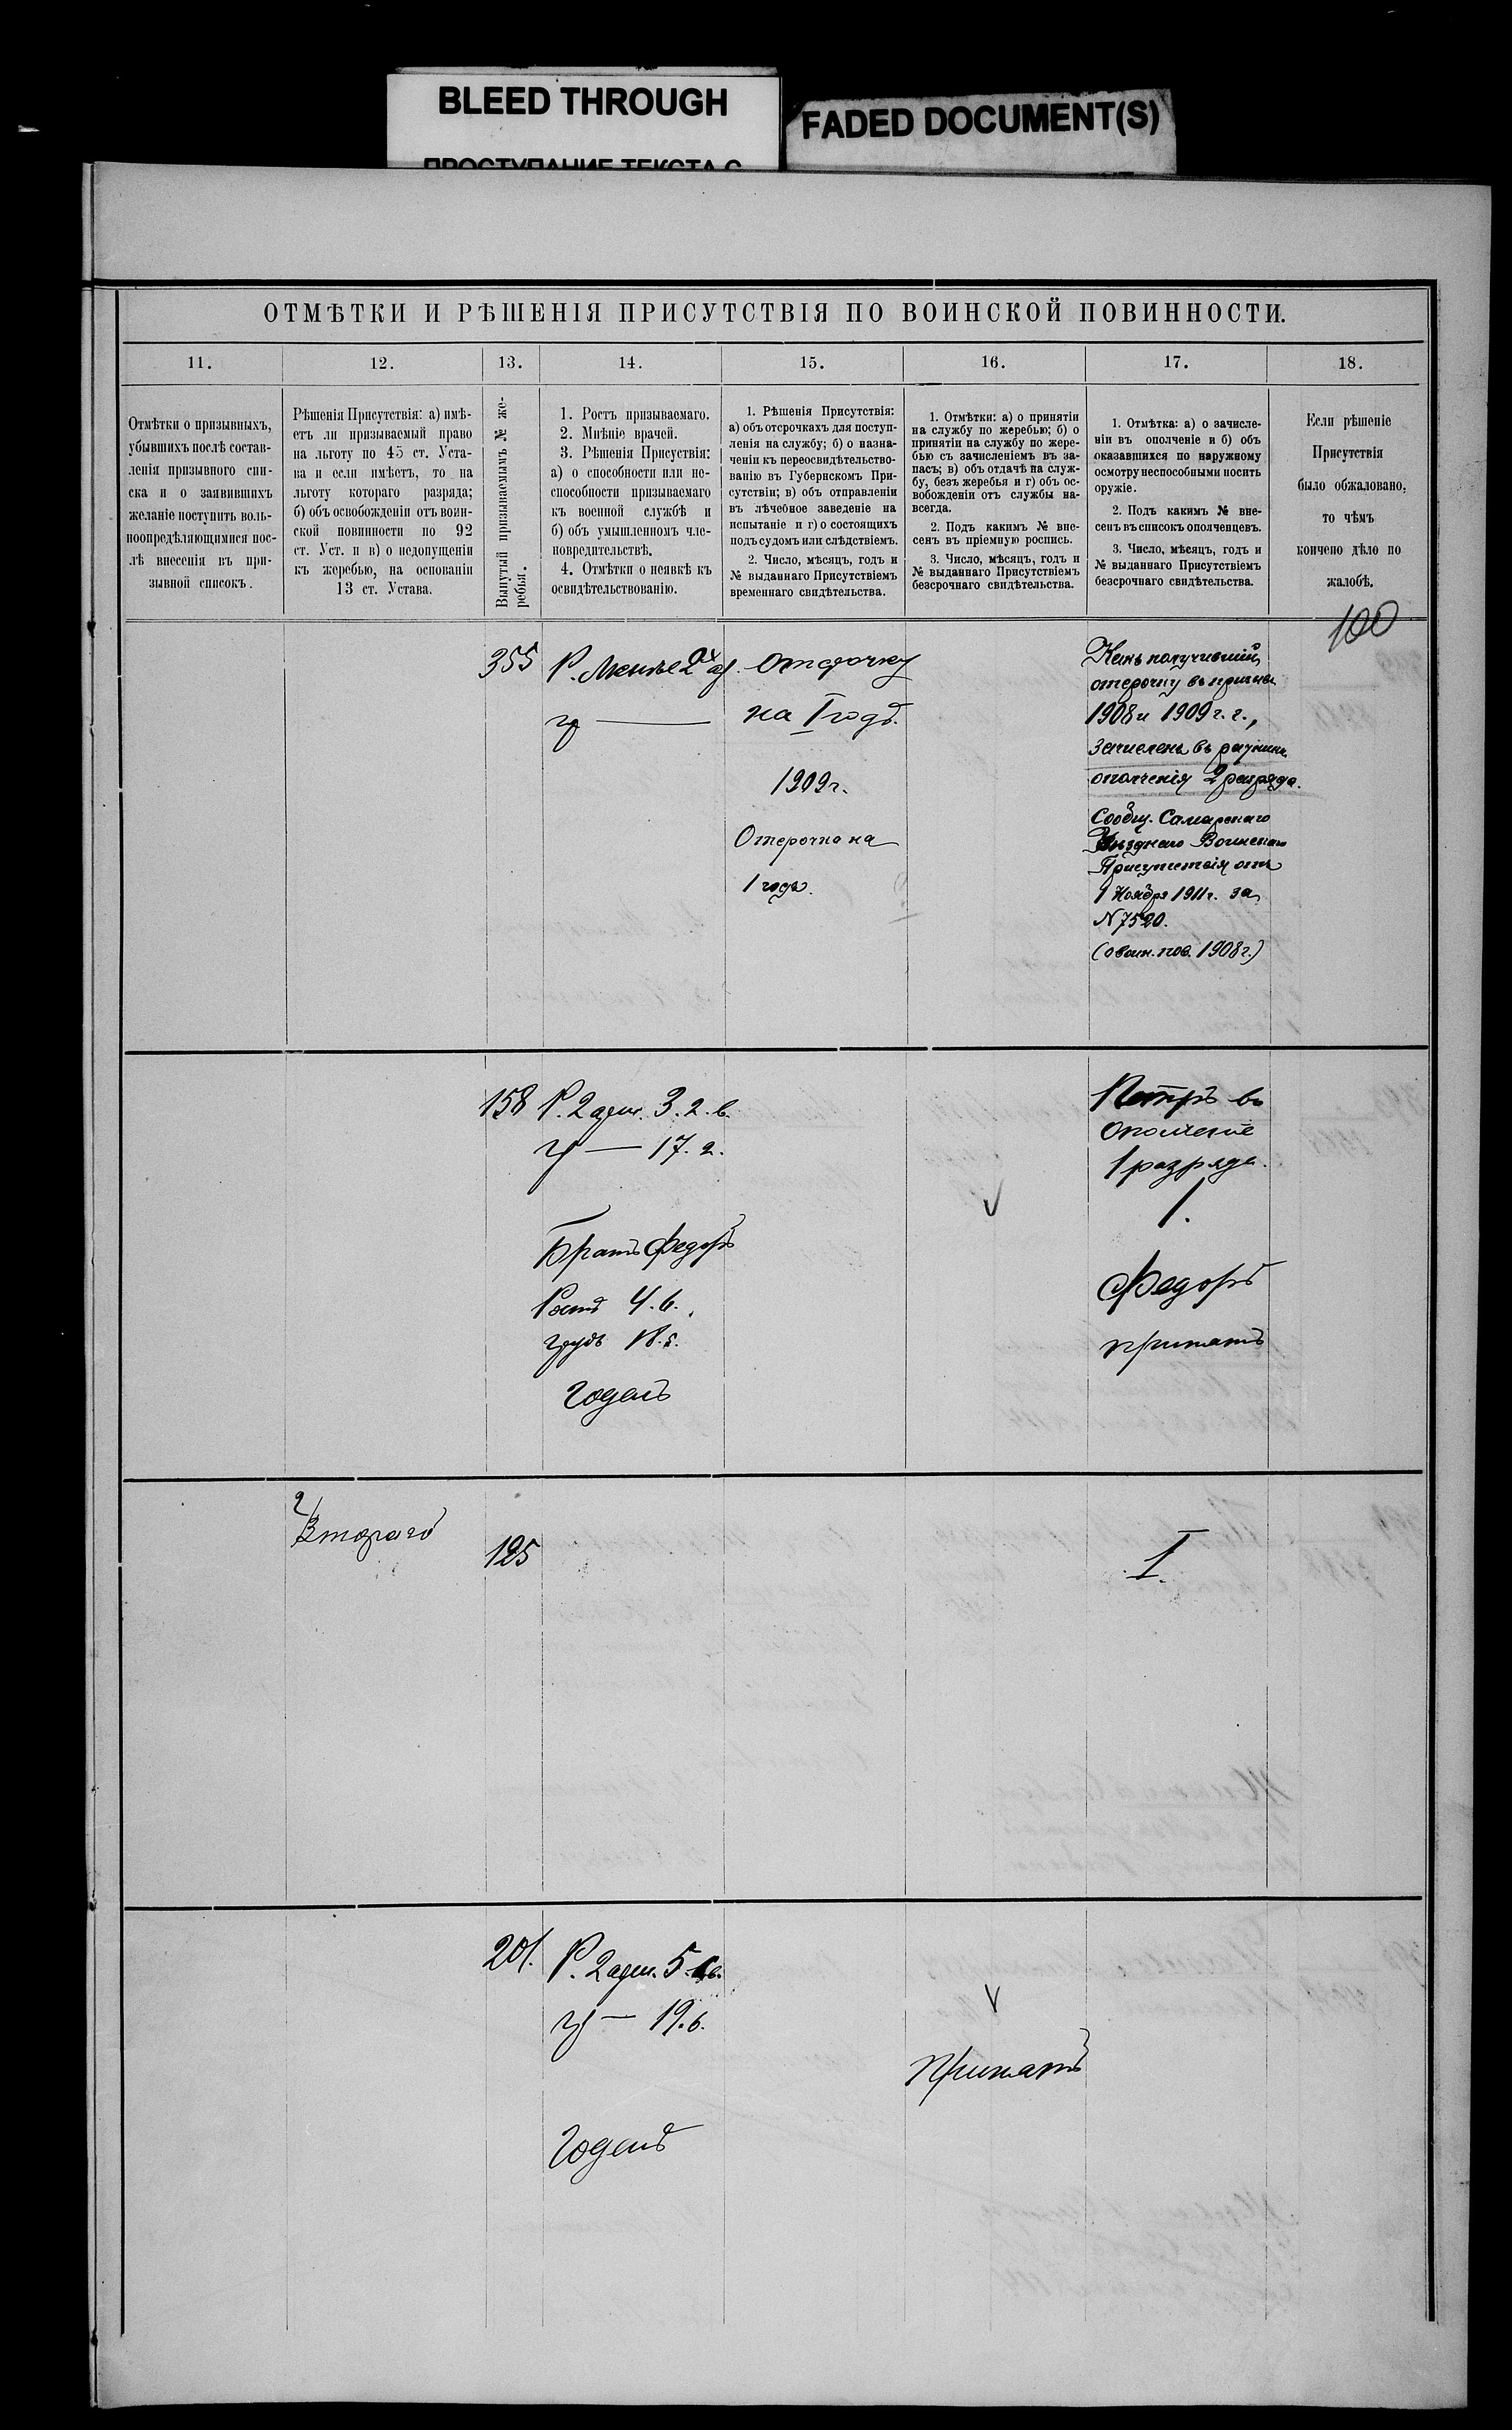 BLEED THROUGH
FADED DOCUMENT(S)
ПРОСТУПАНИЕ ТЕКСТА С
ОТМѢТКИ И РѢШЕНІЯ ПРИСУТСТВІЯ ПО ВОИНСКОЙ ПОВИННОСТИ.
11.
12.
13.
14.
15.
16.
17.
18.
Отмѣтки о призывныхъ,
убывшихъ послѣ состав-
ленія призывного спи-
ска и о заявившихъ
желаніе поступить воль-
ноопредѣляющимися пос-
лѣ внесенія въ при-
зывной списокъ.
Рѣшенія Присутствія: а) имѣ-
етъ ли призываемый право
на льготу по 45 ст. Уста-
ва и если имѣетъ, то на
льготу котораго разряда;
б) объ освобожденіи отъ воин-
ской повинности по 92
ст. Уст. и в) о недопущеніи
къ жеребью, на основаніи
13 ст. Устава.
Вынутый призываемымъ № же-
ребья.
1. Ростъ призываемаго.
2. Мнѣніе врачей.
3. Рѣшенія Присуствія:
а) о способности или не-
способности призываемаго
къ военной службѣ и
б) объ умышленномъ чле-
новредительствѣ.
4. Отмѣтки о неявкѣ къ
освидѣтельствованію.
1. Рѣшенія Присутствія:
а) объ отсрочкахъ для поступ-
ленія на службу; б) о назна-
ченіи къ переосвидѣтельство-
ванію въ Губернскомъ При-
сутствіи; в) объ отправленіи
въ лѣчебное заведеніе на
испытаніе и г) о состоящихъ
подъ судомъ или слѣдствіемъ.
2. Число, мѣсяцъ, годъ и
№ выданнаго Присутствіемъ
временнаго свидѣтельства.
1. Отмѣтки: а) о принятіи
на службу по жеребью; б) о
принятіи на службу по жере-
бью съ зачисленіемъ въ за-
пасъ; в) объ отдачѣ на служ-
бу, безъ жеребья и г) объ ос-
вобожденіи отъ службы на-
всегда.
2. Подъ какимъ № вне-
сенъ въ пріемную роспись.
3. Число, мѣсяцъ, годъ и
№ выданнаго Присутствіемъ
безсрочнаго свидѣтельства.
1. Отмѣтка: а) о зачисле-
ніи въ ополченіе и б) объ
оказавшихся по наружному
осмотру неспособными носить
оружіе.
2. Подъ какимъ № вне-
сенъ въ списокъ ополченцевъ.
3. Число, мѣсяцъ, годъ и
№ выданнаго Присутствіемъ
безсрочнаго свидѣтельства.
Если рѣшеніе
Присутствія
было обжаловано,
то чѣмъ
кончено дѣло по
жалобѣ.
100
355
Р. менѣе 2х а
г —
Отсрочку
на I годъ.
1909 г.
Отсрочка на
1 годъ.
Какъ получившій
отсрочку въ призывы
1908 и 1909 г.г.,
зачисленъ въ ратники
ополченія 2 разряда.
Сообщ. Самарскаго
Уѣзднаго Воинскаго
Присутствія отъ
1 Ноября 1911 г. за
N 7520.
(о воин. пов. 1908 г.)
158
Р. 2 арш. 3. 2. в.
г — 17. 2.
Братъ Федоръ
Ростъ 4. 6.
грудь 18. 5.
Годенъ
Петръ въ
ополченіе
1 разряда.
1.
Федоръ
принятъ
2
Второго
125
I.
201.
Р. 2 арш. 5 в.
г — 19. 6.
Годенъ
принятъ